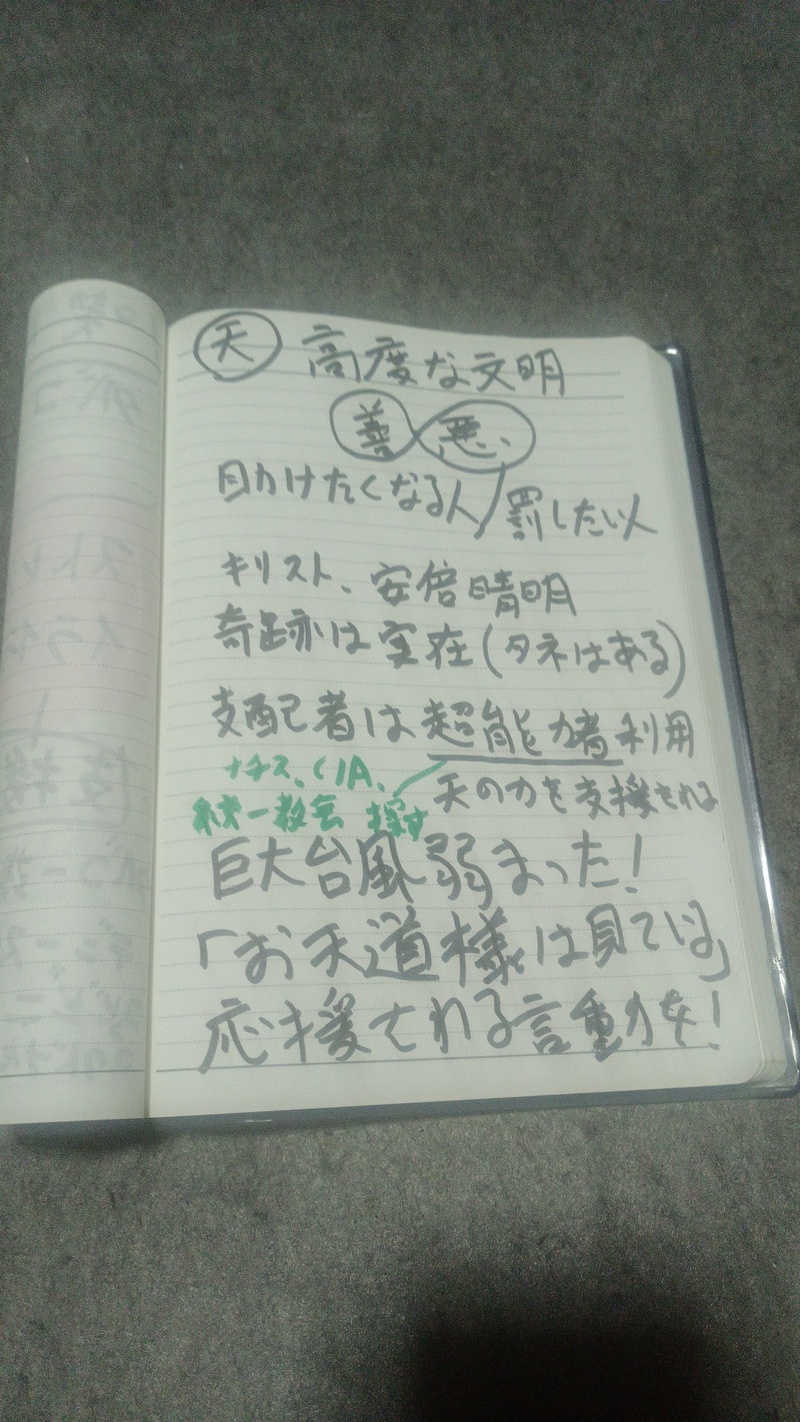 天 高度な文明
善 悪
助けたくなる人/罰したい人
キリスト、安倍晴明
奇跡は実在(タネはある)
支配者は超能力者利用
ナチス、CIA、
統一教会 探す
天の力を支援される
巨大台風弱まった!
「お天道様は見てい」
応援される言動を!